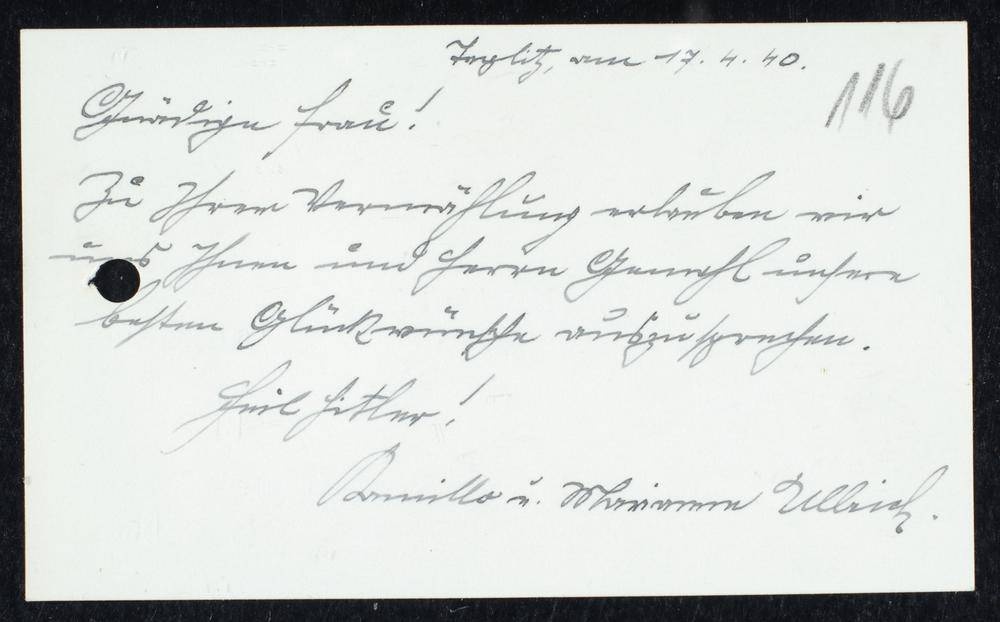 Teplitz, am 17. 4. 40.
116
Gnädige Frau!
Zu Ihrer Vermählung erlauben wir
uns Ihnen und Herrn Gemahl unsere
besten Glückwünsche auszusprechen.
Heil Hitler!
Kamillo u. Marianne Ullrich.